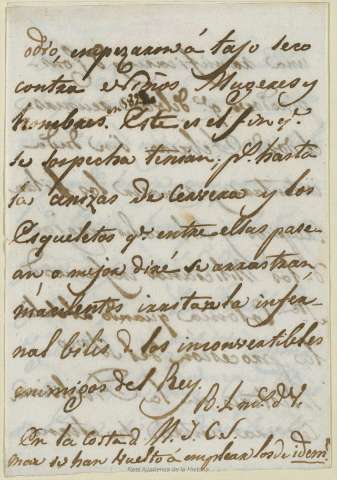 odio empezaron á tajo seco
contra Niños, Mugeres y
hombres. Este es el fin q.e
se sospecha tenian: p.s hasta
la cenizas de Cervera y los
Esqueletos q.e entre ellas pase-
an a mejor diré se arrastran
macilentos irritan la infer-
nal bilis de los inconvertibles
enemigos del Rey.
B. L. m. d. V.
En la costa d. M. J. C. S.
mar se han vuelto á emplear los de idem
Real Academia de la Historia